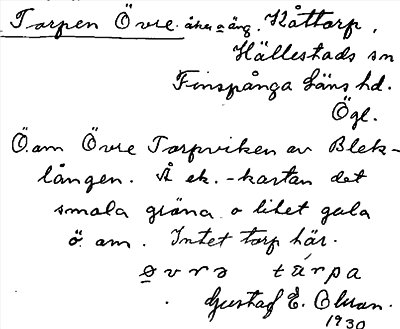 Torpen Övre. åker o äng. Kåttorp,
Hällestads sn
Finspånga läns hd.
Ögl.
Ö. om Övre Torpviken av Blek-
lången. Å ek.-kartan det
smala gröna o litet gula
ö. om. Intet torp här.
øvrə tárpa
Gustaf E. Olsson.
1930